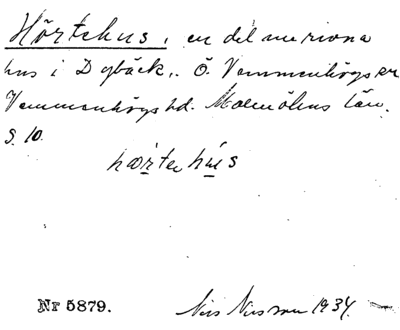 Hörtehus, en del nu rivna
hus i Dybäck, Ö. Vemmenhögs sn
Vemmenhögs hd. Malmöhus län.
S. 10.
hœrtehús
Nr 5879. Nils Nilsson 1934.